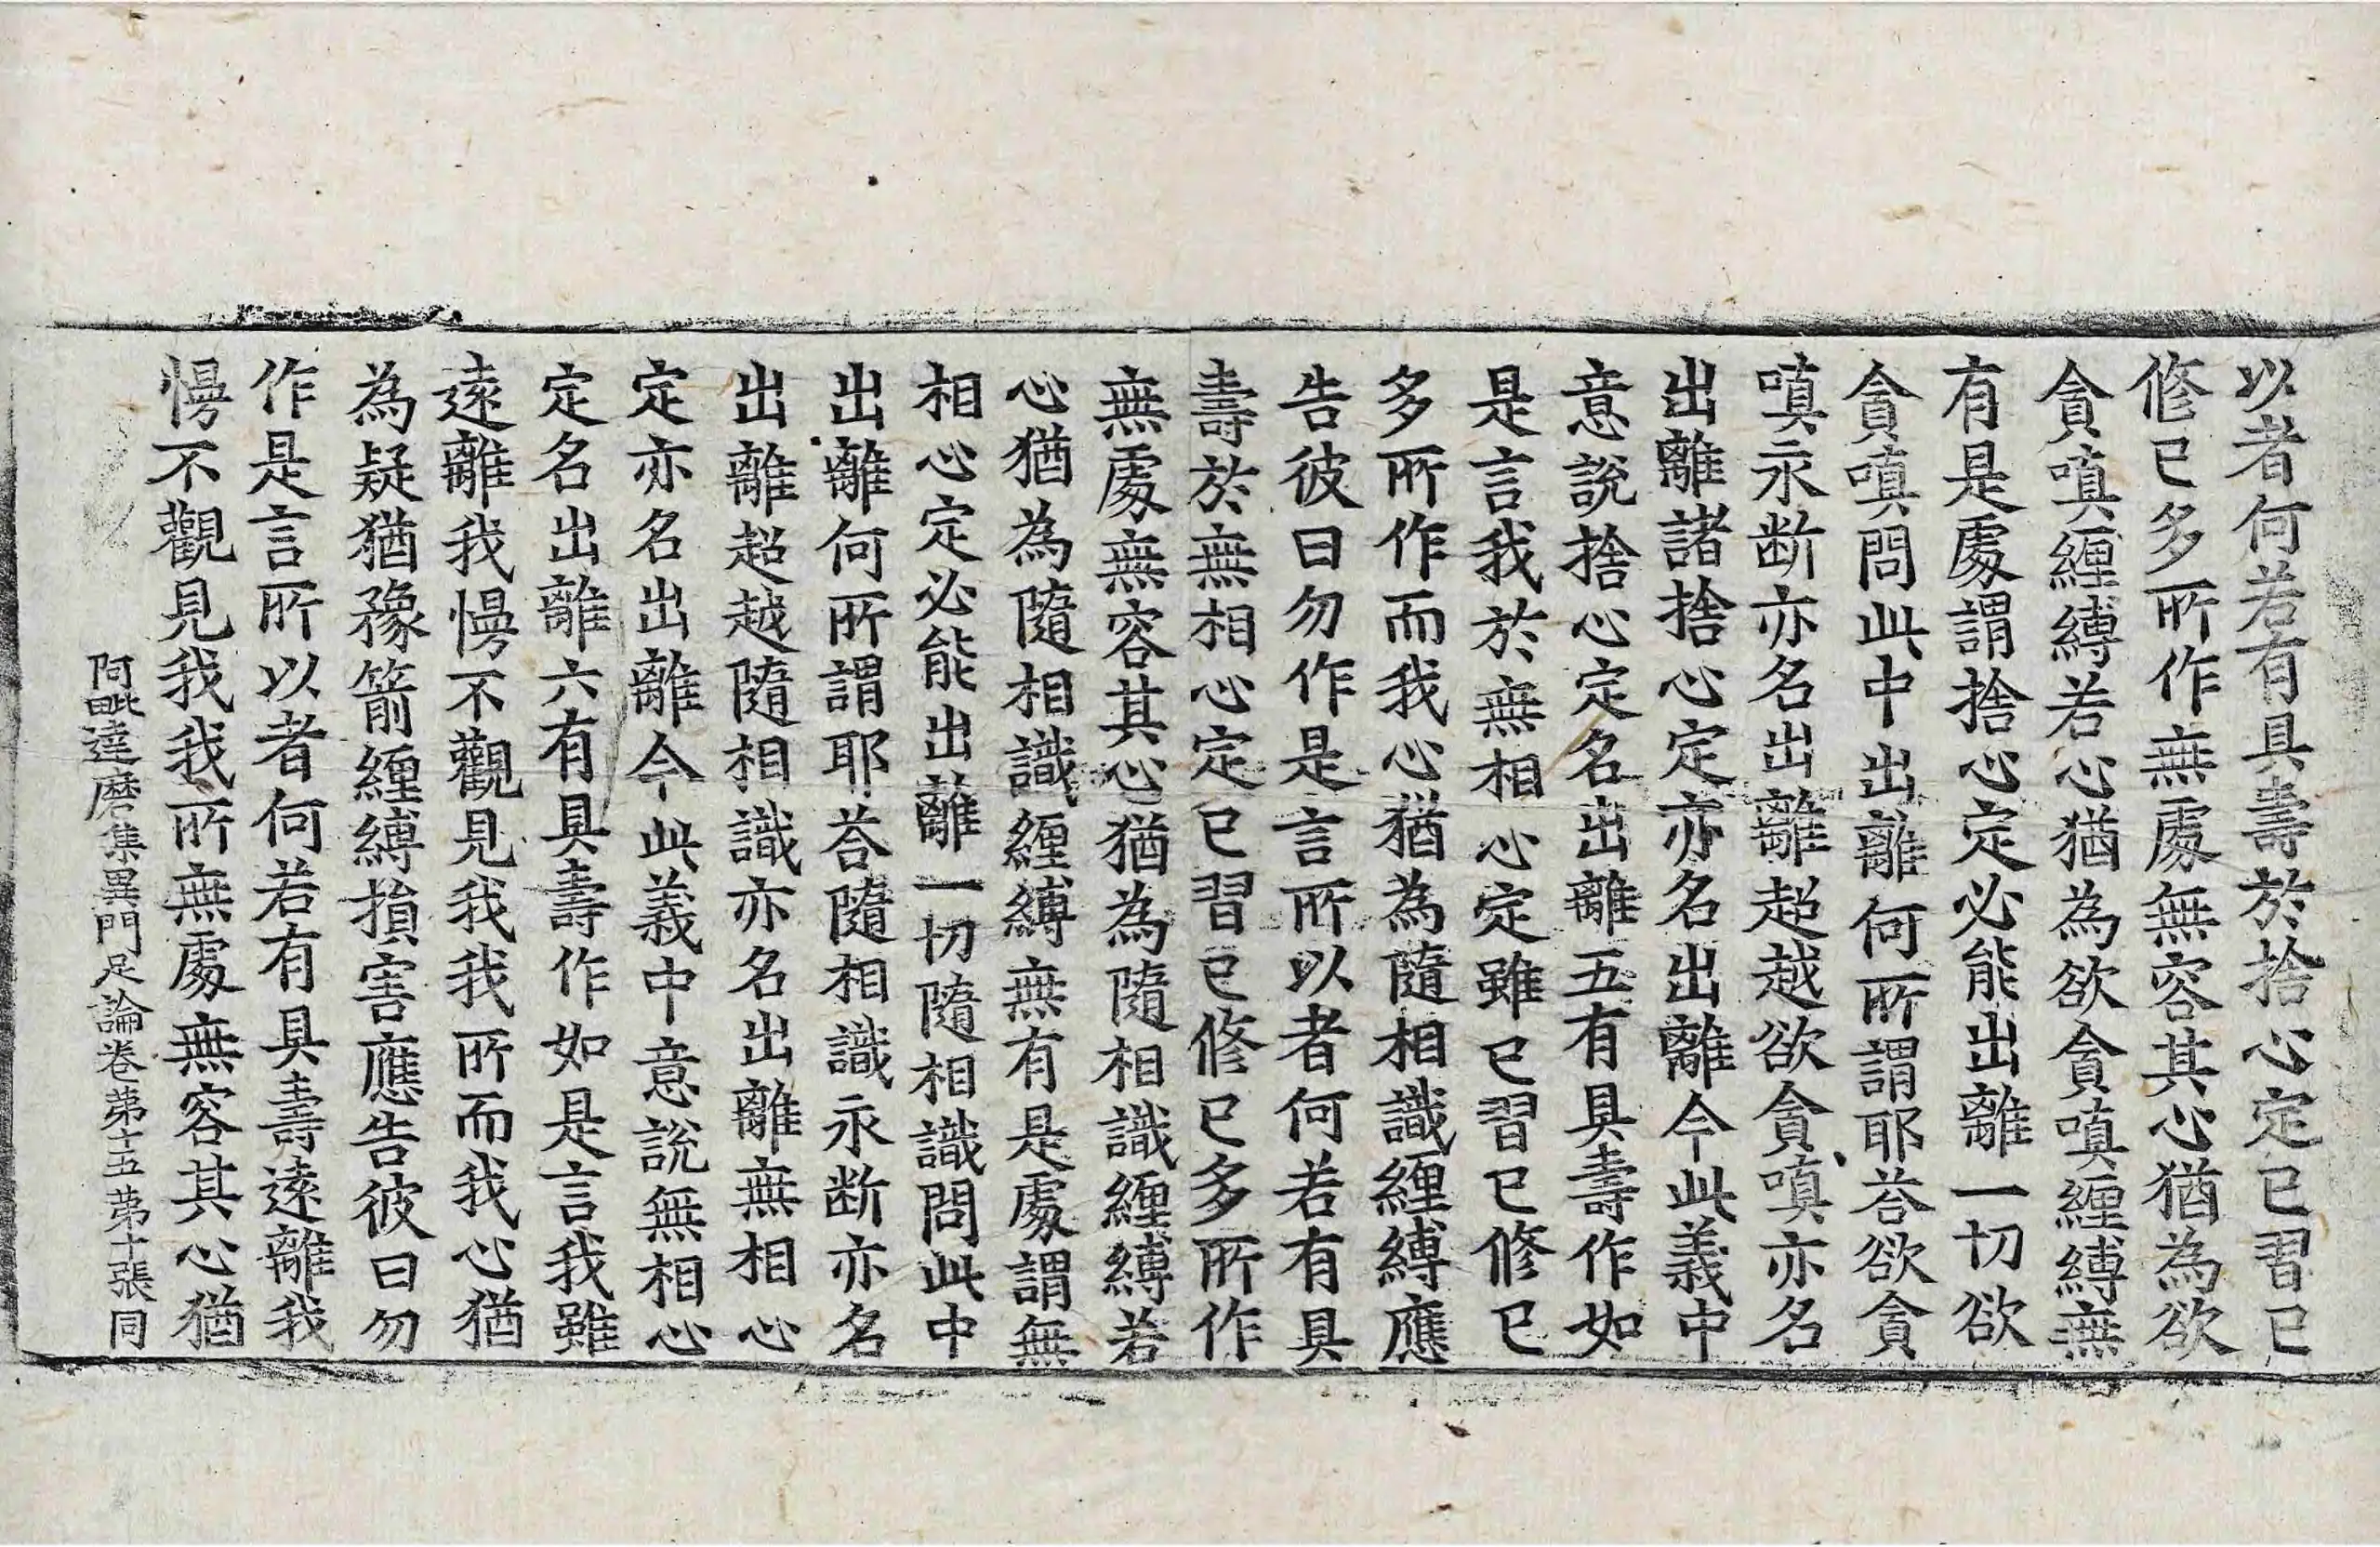 以者何若有具壽於捨心定已習已
修已多所作無處無容其心猶為欲
貪嗔纏縛若心猶為欲貪嗔纏縛無
有是處謂捨心定必能出離一切欲
貪嗔問此中出離何所謂耶荅欲貪
嗔永断亦名出離超越欲貪嗔亦名
出離諸捨心定亦名出離今此義中
意說捨心定名出離五有具壽作如
是言我於無相心定雖已習已修已
多所作而我心猶為隨相識纏縛應
告彼曰勿作是言所以者何若有具
壽於無相心定已習已修已多所作
無處無容其心猶為隨相識纏縛若
心猶為隨相識纏縛無有是處謂無
相心定必能出離一切隨相識問此中
出離何所謂耶荅隨相識永断亦名
出離超越隨相識亦名出離無相心
定亦名出離今此義中意說無相心
定名出離六有具壽作如是言我雖
遠離我慢不觀見我我所而我心猶
為疑猶豫箭纏縛損害應告彼曰勿
作是言所以者何若有具壽遠離我
慢不觀見我我所無處無容其心猶
阿毗達磨集異門足論卷第十五 第十張 同